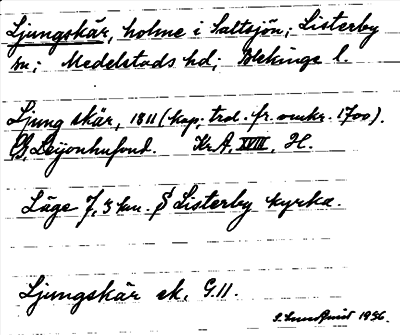 Ljungskär, holme i Saltsjön; Listerby
sn; Medelstads hd; Blekinge l.
Ljung skär, 1811 (kop. trol. fr. omkr. 1700).
C.G. Leijonhufvud. Kr.A, XVIII, H.
Läge 7,3 km. S Listerby kyrka.
Ljungskär ek. G.11.
S. Sundqvist 1936.